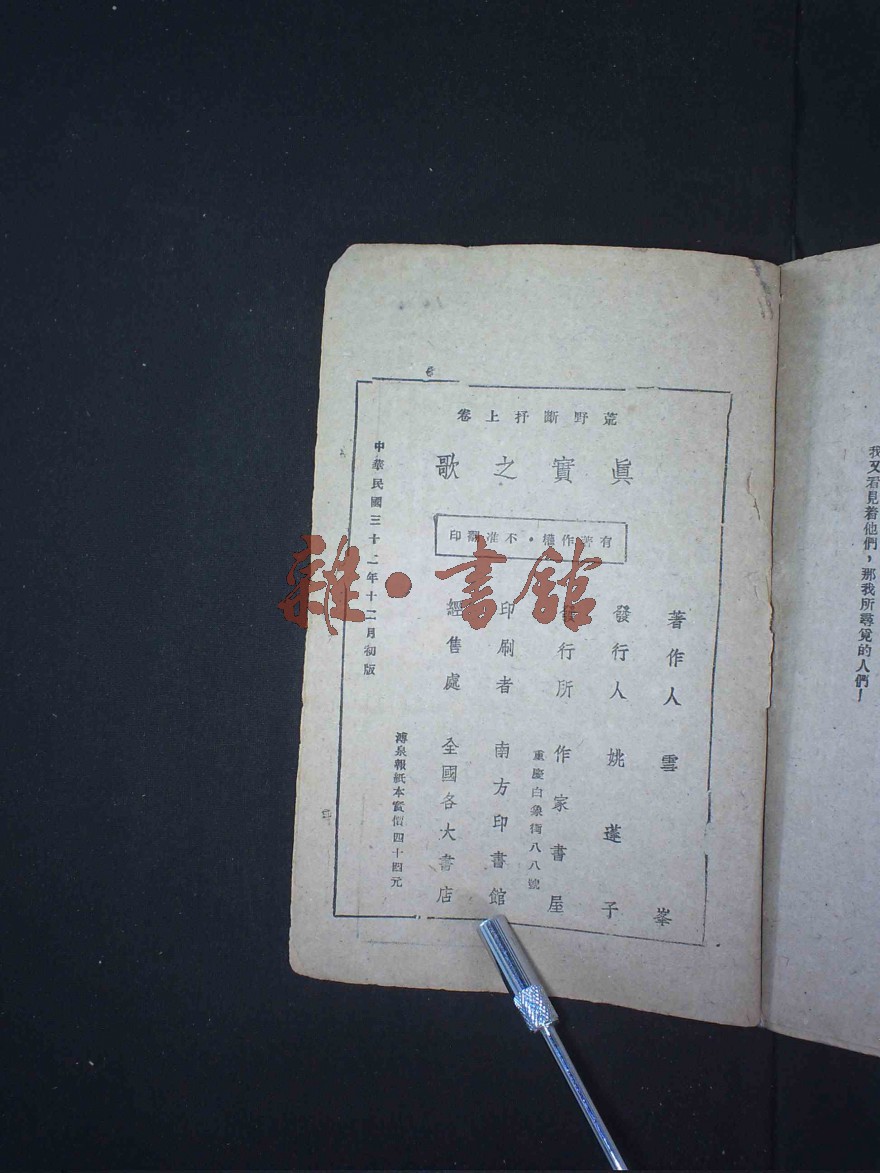 荒野斷抒上卷
眞實之歌
有著作權・不准翻印
著作人 雪峯
發行人 姚蓬子
發行所 作家書屋
重慶白象街八八號
印刷者 南方印書館
經售處 全國各大書店
溥泉報紙本實價四十四元
中華民國三十二年十二月初版
我又看見着他們，那我所尋覓的人們！
雜・書館